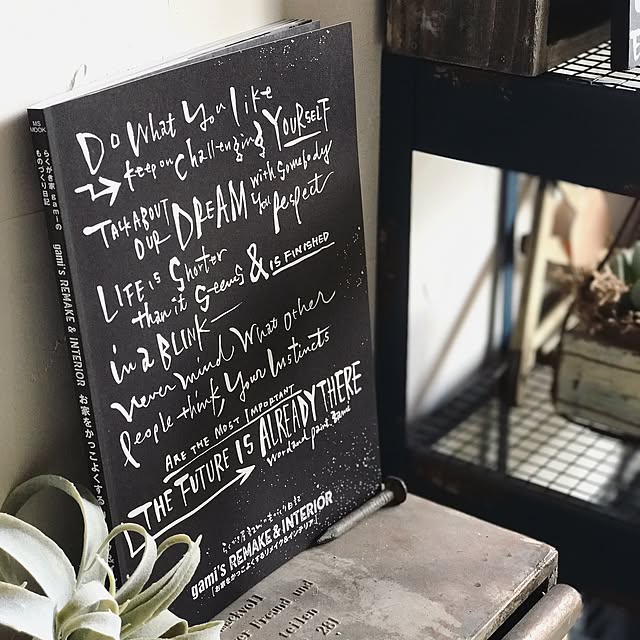 Do What You like
keep on Challenging YOURSELF
TALK ABOUT OUR DREAM with Somebody You Respect
LIFE is Shorter
than it Seems & IS FINISHED
in a BLINK
Never mind What other
People think, Your Instincts
ARE THE MOST IMPORTANT
THE FUTURE IS ALREADY THERE
word and paint gami
らくがき家gamiのものづくり日記
gami's REMAKE & INTERIOR
「お家をかっこよくするリメイク&インテリア」
MS MOOK
らくがき家gamiの
ものづくり日記
gami's REMAKE & INTERIOR お家をかっこよくする
und
281